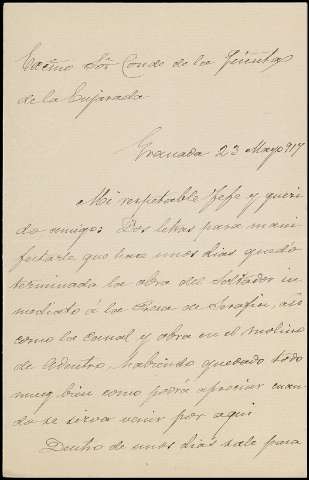 Excmo Sôr Conde de las Ynfantas
de la Enjarada
Granada 23 Mayo 917
Mi respetable Jefe y queri
do amigo: Dos letras para mani
festarle que hace unos dias quedó
terminada la obra del Saltador in
mediato á la Presa de Serafin, asi
como la Canal y obra en el Molino
de Adentro, habiendo quedado todo
muy bien como podrá apreciar cuan
do se sirva venir por aqui
Dentro de unos dias sale para